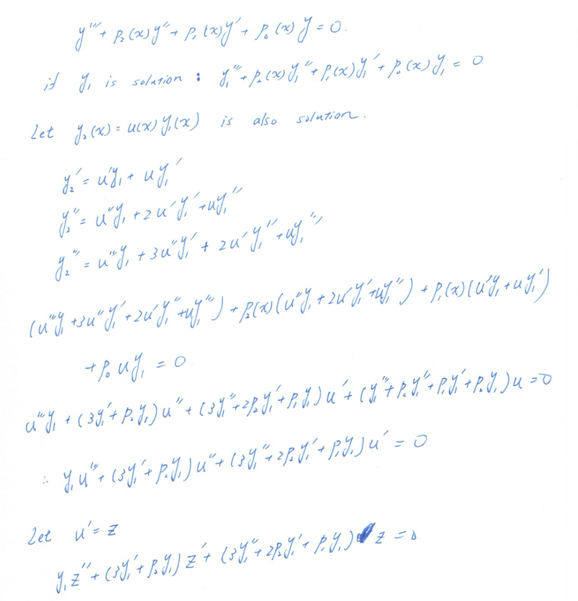 y''' + p₂(x)y'' + p₁(x)y' + p₀(x)y = 0.
if y₁ is solution : y₁''' + p₂(x)y₁'' + p₁(x)y₁' + p₀(x)y₁ = 0
Let y₂(x) = u(x)y₁(x) is also solution.
y₂' = u'y₁ + uy₁'
y₂'' = u''y₁ + 2u'y₁' + uy₁''
y₂''' = u'''y₁ + 3u''y₁' + 2u'y₁'' + uy₁'''
(u'''y₁ + 3u''y₁' + 2u'y₁'' + uy₁''') + p₂(x)(u''y₁ + 2u'y₁' + uy₁'') + p₁(x)(u'y₁ + uy₁')
+ p₀uy₁ = 0
u'''y₁ + (3y₁' + p₂y₁)u'' + (3y₁'' + 2p₂y₁' + p₁y₁)u' + (y₁''' + p₂y₁'' + p₁y₁' + p₀y₁)u = 0
∴ y₁u''' + (3y₁' + p₂y₁)u'' + (3y₁'' + 2p₂y₁' + p₁y₁)u' = 0
Let u' = z
y₁z'' + (3y₁' + p₂y₁)z' + (3y₁'' + 2p₂y₁' + p₁y₁)z = 0